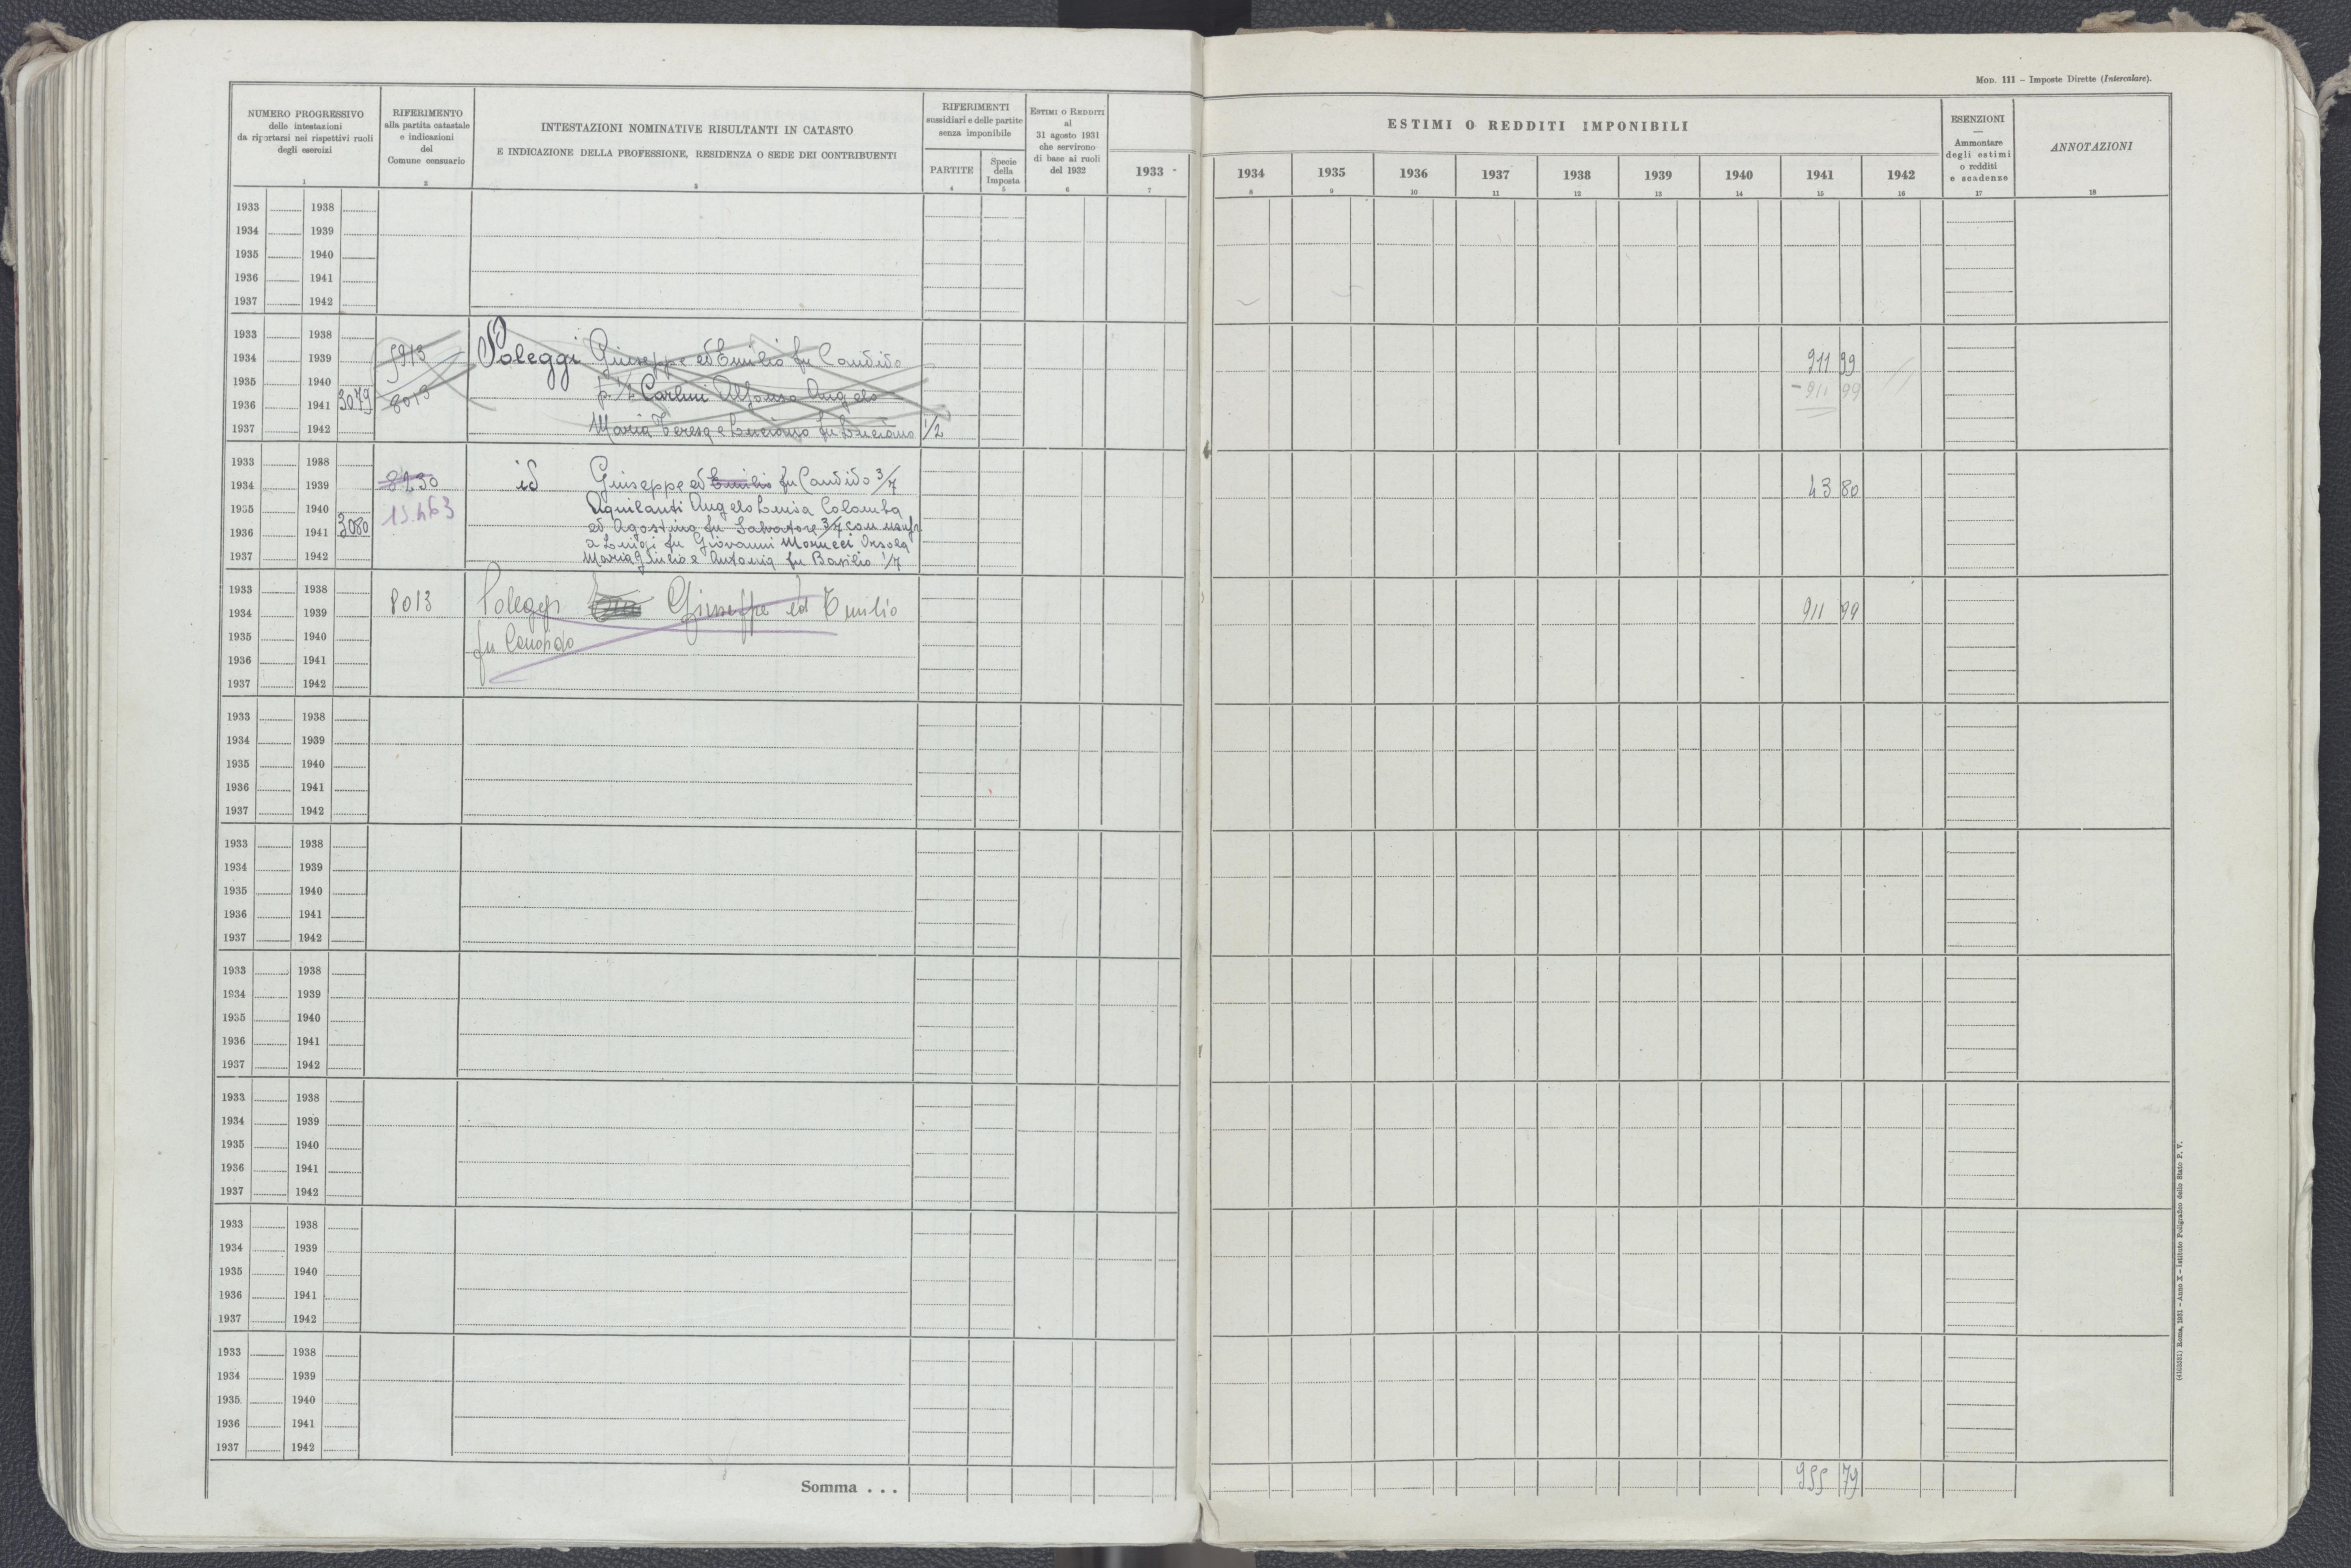 MOD. 111 – Imposte Dirette (Intercalare).
NUMERO PROGRESSIVO
delle intestazioni
da riportarsi nei rispettivi ruoli
degli esercizi
1
RIFERIMENTO
alla partita catastale
e indicazioni
del
Comune censuario
2
INTESTAZIONI NOMINATIVE RISULTANTI IN CATASTO
E INDICAZIONE DELLA PROFESSIONE, RESIDENZA O SEDE DEI CONTRIBUENTI
3
RIFERIMENTI
sussidiari e delle partite
senza imponibile
PARTITE
4
Specie
della
Imposta
5
ESTIMI O REDDITI
al
31 agosto 1931
che servirono
di base ai ruoli
del 1932
6
ESTIMI O REDDITI IMPONIBILI
1933
7
1934
8
1935
9
1936
10
1937
11
1938
12
1939
13
1940
14
1941
15
1942
16
ESENZIONI
—
Ammontare
degli estimi
o redditi
e scadenze
17
ANNOTAZIONI
18
1933 1938
1934 1939
1935 1940
1936 1941
1937 1942
1933 1938
1934 1939 5913 Poleggi Giuseppe ed Emilio fu Candido 911 99
1935 1940 p. 1/2 Carlini Alfonso Angelo – 911 99
1936 1941 3079 8013
1937 1942 Maria Teresa e Luciano fu Luciano 1/2
1933 1938
1934 1939 8250 id Giuseppe ed Emilio fu Candido 3/7 43 80
1935 1940 15.463 Aquilanti Angelo Luisa Colomba
1936 1941 3080 ed Agostina fu Salvatore 3/7 con usufr.
a Luigi fu Giovanni Morucci Orsola
1937 1942 Maria Giulia e Antonia fu Basilio 1/7
1933 1938
1934 1939 8013 Poleggi Giuseppe ed Emilio 911 99
1935 1940 fu Candido
1936 1941
1937 1942
1933 1938
1934 1939
1935 1940
1936 1941
1937 1942
1933 1938
1934 1939
1935 1940
1936 1941
1937 1942
1933 1938
1934 1939
1935 1940
1936 1941
1937 1942
1933 1938
1934 1939
1935 1940
1936 1941
1937 1942
1933 1938
1934 1939
1935 1940
1936 1941
1937 1942
1933 1938
1934 1939
1935 1940
1936 1941
1937 1942
Somma . . . 955 79
Roma, 1931 – Anno X – Istituto Poligrafico dello Stato P. V.